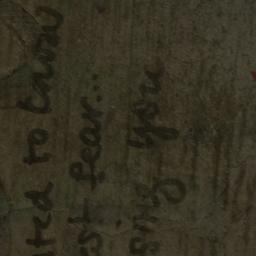 ted to know
st fear...
sing you